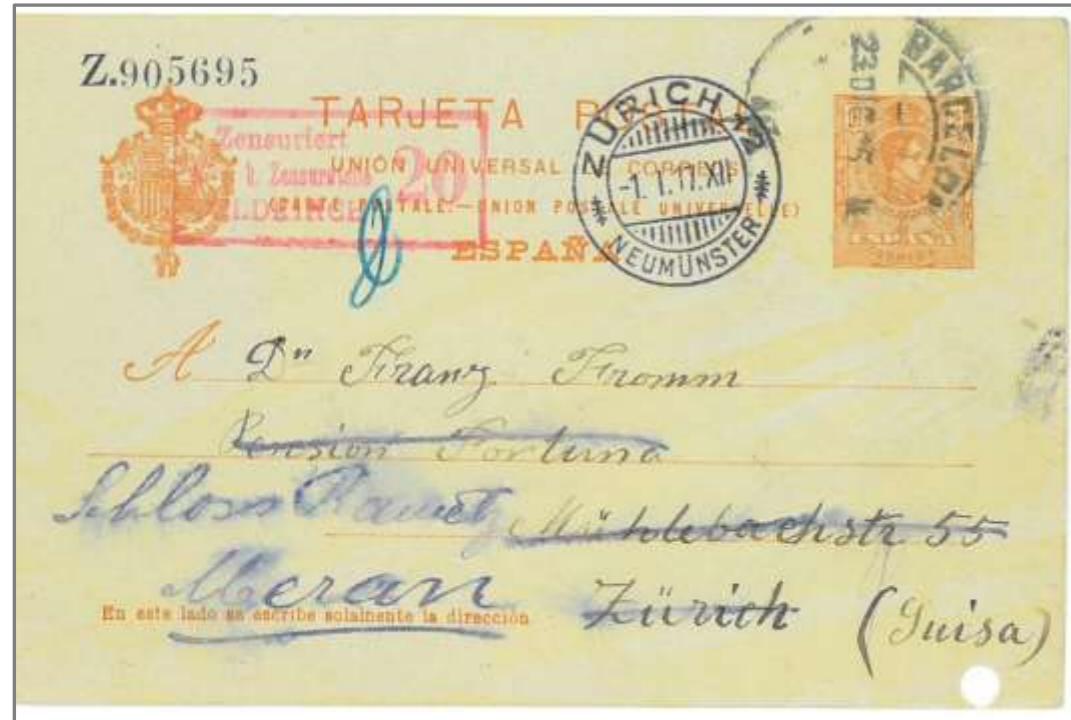 Z.905695
TARJETA POSTAL
UNIÓN UNIVERSAL DE CORREOS
(CARTE POSTALE.—UNION POSTALE UNIVERSELLE)
ESPAÑA
Zensuriert
k. Zensurstelle
FELDKIRCH
20
ZÜRICH 12
-1. I. 17. XII
NEUMÜNSTER
BARCELONA
23 DIC
ESPAÑA
A Dn Franz Fromm
Pension Fortuna
Schloss Rametz Mühlebachstr 55
Meran Zürich (Suisa)
En este lado se escribe solamente la dirección